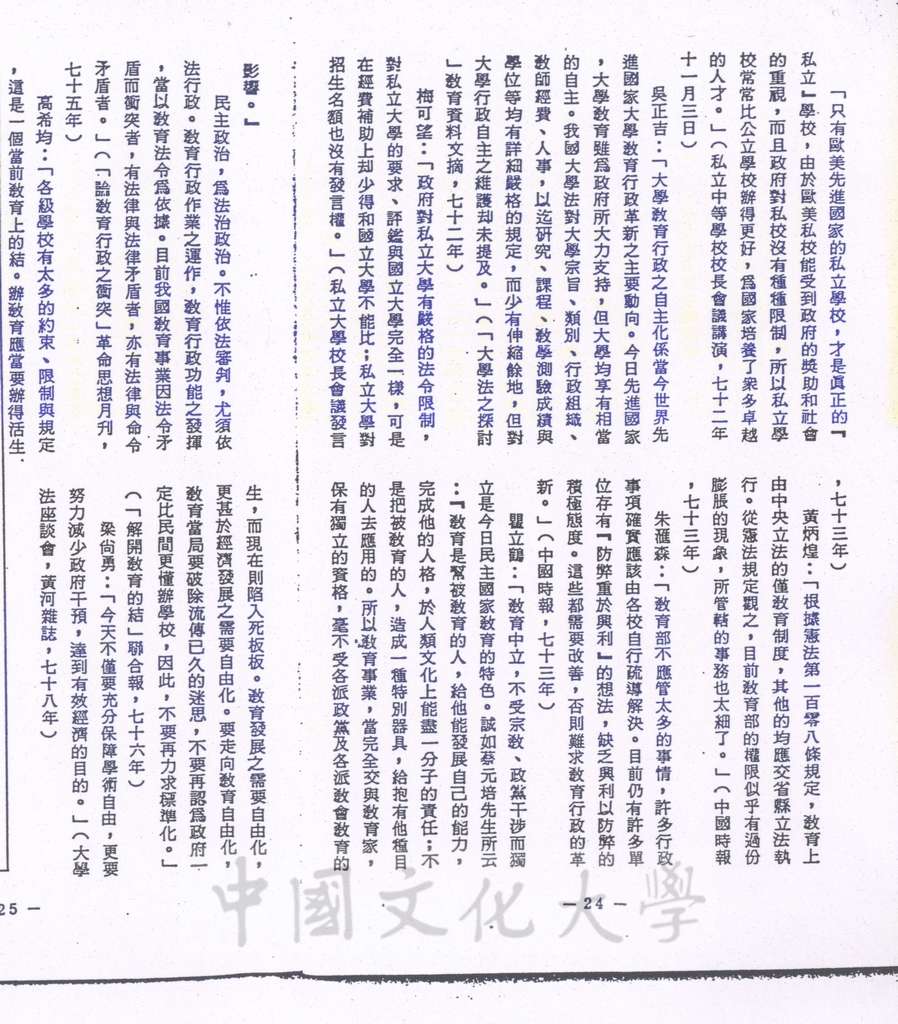 「只有歐美先進國家的私立學校，才是眞正的『
私立』學校，由於歐美私校能受到政府的獎助和社會
的重視，而且政府對私校沒有種種限制，所以私立學
校常常比公立學校辦得更好，爲國家培養了衆多卓越
的人才。」（私立中等學校校長會議講演，七十二年
十一月三日）
吳正吉：「大學敎育行政之自主化係當今世界先
進國家大學敎育行政革新之主要動向。今日先進國家
，大學敎育雖爲政府所大力支持，但大學均享有相當
的自主。我國大學法對大學宗旨、類別、行政組織、
敎師經費、人事，以迄硏究、課程、敎學測驗成績與
學位等均有詳細嚴格的規定，而少有伸縮餘地，但對
大學行政自主之維護却未提及。」（「大學法之探討
」敎育資料文摘，七十二年）
梅可望：「政府對私立大學有嚴格的法令限制，
對私立大學的要求、評鑑與國立大學完全一樣，可是
在經費補助上却少得和國立大學不能比；私立大學對
招生名額也沒有發言權。」（私立大學校長會議發言
，七十三年）
黃炳煌：「根據憲法第一百零八條規定，敎育上
由中央立法的僅敎育制度，其他的均應交省縣立法執
行。從憲法規定觀之，目前敎育部的權限似乎有過份
膨脹的現象，所管轄的事務也太細了。」（中國時報
，七十三年）
朱滙森：「敎育部不應管太多的事情，許多行政
事項確實應該由各校自行疏導解決。目前仍有許多單
位存有『防弊重於興利』的想法，缺乏興利以防弊的
積極態度。這些都需要改善，否則難求敎育行政的革
新。」（中國時報，七十三年）
瞿立鶴：「敎育中立，不受宗敎、政黨干涉而獨
立是今日民主國家敎育的特色。誠如蔡元培先生所云
：『敎育是幫被敎育的人，給他能發展自己的能力，
完成他的人格，於人類文化上能盡一分子的責任；不
是把被敎育的人，造成一種特別器具，給抱有他種目
的人去應用的。所以敎育事業，當完全交與敎育家，
保有獨立的資格，毫不受各派政黨及各派敎會敎育的
— 24 —
影響。』
民主政治，爲法治政治。不惟依法審判，尤須依
法行政。敎育行政作業之運作，敎育行政功能之發揮
，當以敎育法令爲依據。目前我國敎育事業因法令矛
盾而衝突者，有法律與法律矛盾者，亦有法律與命令
矛盾者。」（「論敎育行政之衝突」革命思想月刋，
七十五年）
高希均：「各級學校有太多的約束、限制與規定
，這是一個當前敎育上的結。辦敎育應當要辦得活生
生，而現在則陷入死板板。敎育發展之需要自由化，
更甚於經濟發展之需要自由化。要走向敎育自由化，
敎育當局要破除流傳已久的迷思，不要再認爲政府一
定比民間更懂辦學校，因此，不要再力求標準化。」
（「解開敎育的結」聯合報，七十六年）
梁尙勇：「今天不僅要充分保障學術自由，更要
努力減少政府干預，達到有效經濟的目的。」（大學
法座談會，黃河雜誌，七十八年）
25 —
中國文化大學